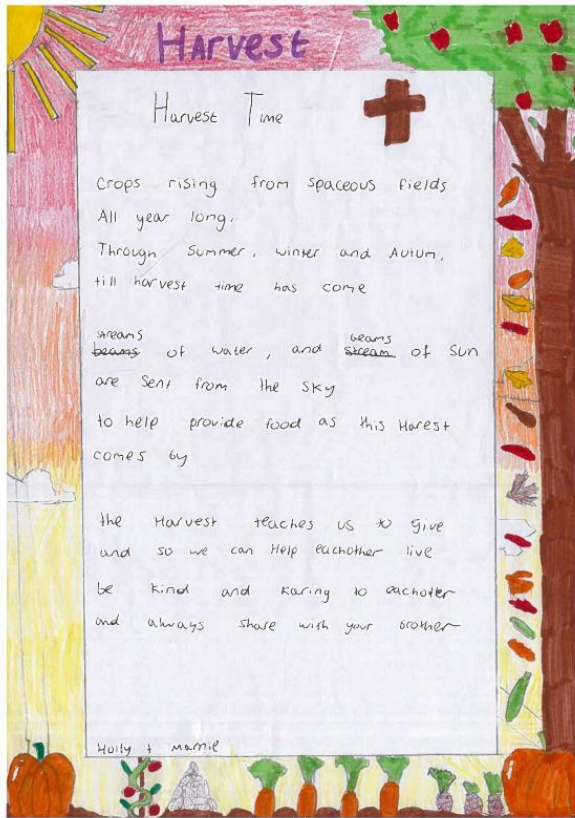 Harvest
Harvest Time
Crops rising from spaceous fields
All year long.
Through Summer, winter and Autum,
till harvest time has come
streams beams
beams of water, and stream of sun
are sent from the sky
to help provide food as this Harest
comes by
the Harvest teaches us to give
and so we can Help eachother live
be kind and Karing to eachotter
and always share with your brother
Holly + Marnie